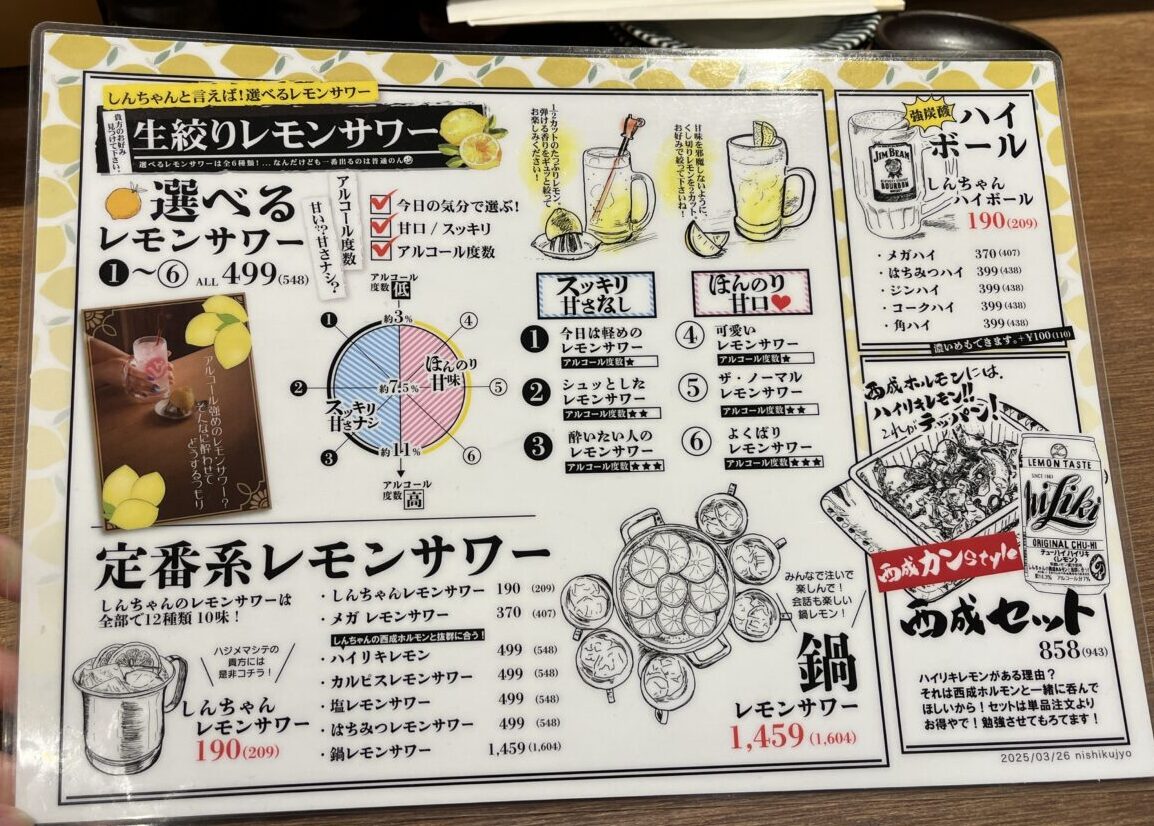 しんちゃんと言えば!選べるレモンサワー
貴方のお好み
見つけて下さい。
生絞りレモンサワー
選べるレモンサワーは全6種類!…なんだけども一番出るのは普通のん
選べる
レモンサワー
❶〜⑥ ALL 499(548)
アルコール度数
甘い!?甘さナシ?
今日の気分で選ぶ!
甘口 / スッキリ
アルコール度数
アルコール
度数 低
約3%
❶
④
ほんのり
甘味
❷
約7.5%
⑤
スッキリ
甘さナシ
❸
約11%
⑥
アルコール
度数 高
アルコール強めのレモンサワー?
そんなに酔わせて
どうするつもり
1/2カットのたっぷりレモン。
弾ける香りをギュッと絞って
お楽しみください!
甘味を邪魔しないように、
くし切りレモンを2カット。
お好みで絞って下さいね!
スッキリ
甘さなし
❶ 今日は軽めの
レモンサワー
アルコール度数★
❷ シュッとした
レモンサワー
アルコール度数★★
❸ 酔いたい人の
レモンサワー
アルコール度数★★★
ほんのり
甘口
④ 可愛い
レモンサワー
アルコール度数★
⑤ ザ・ノーマル
レモンサワー
アルコール度数★★
⑥ よくばり
レモンサワー
アルコール度数★★★
定番系レモンサワー
しんちゃんのレモンサワーは
全部で12種類 10味!
ハジメマシテの
貴方には
是非コチラ!
しんちゃん
レモンサワー
190(209)
・しんちゃんレモンサワー 190 (209)
・メガ レモンサワー 370 (407)
しんちゃんの西成ホルモンと抜群に合う!
・ハイリキレモン 499 (548)
・カルピスレモンサワー 499 (548)
・塩レモンサワー 499 (548)
・はちみつレモンサワー 499 (548)
・鍋レモンサワー 1,459 (1,604)
みんなで注いで
楽しんで!
会話も楽しい
鍋レモン!
鍋
レモンサワー
1,459 (1,604)
強炭酸
ハイ
ボール
JIM BEAM
BOURBON
しんちゃん
ハイボール
190(209)
・メガハイ 370(407)
・はちみつハイ 399(438)
・ジンハイ 399(438)
・コークハイ 399(438)
・角ハイ 399(438)
濃いめもできます。+¥100(110)
西成ホルモンには、
ハイリキレモン!!
これがテッパン!
LEMON TASTE
SINCE 1983
hiLiki
ORIGINAL CHU-HI
チューハイ ハイリキ
(レモン)
アルコール分7%
西成カンStyle
西成セット
858(943)
ハイリキレモンがある理由?
それは西成ホルモンと一緒に呑んで
ほしいから!セットは単品注文より
お得やで!勉強させてもろてます!
2025/03/26 nishikujyo